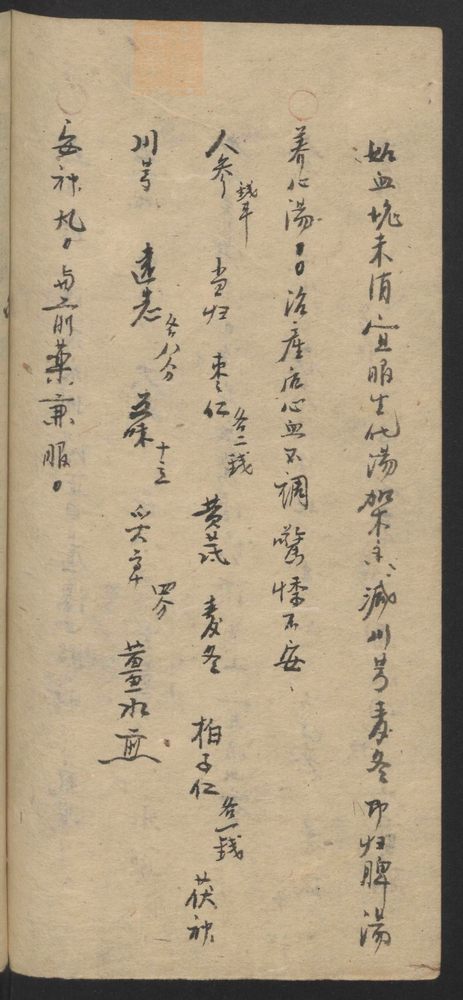 如血塊未消宜服生化湯加朮志減川芎麦冬即归脾湯
养心湯 治產后心血不調驚悸不安
人参 錢半 当归 枣仁 各二錢 黄芪 麦冬 柏子仁 各一錢 茯神
川芎 遠志 各八分 五味 十立 炙草 四分 薑水煎
安神丸 与前藥兼服